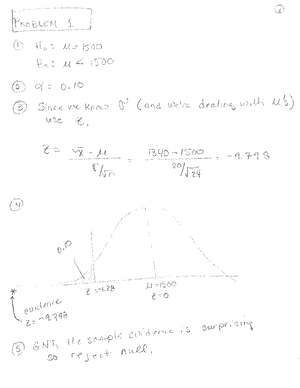 PROBLEM 1
① H₀: μ = 1500
Hₐ: μ < 1500
② α = 0.10
③ Since we know σ (and we're dealing with μ's)
use z.
z = x̄ - μ / σ/√n = 1340 - 1500 / 80/√24 = -9.798
④
0.10
evidence
z = -9.798
z = -1.28
μ = 1500
z = 0
⑤ the sample evidence is surprising
so reject null.